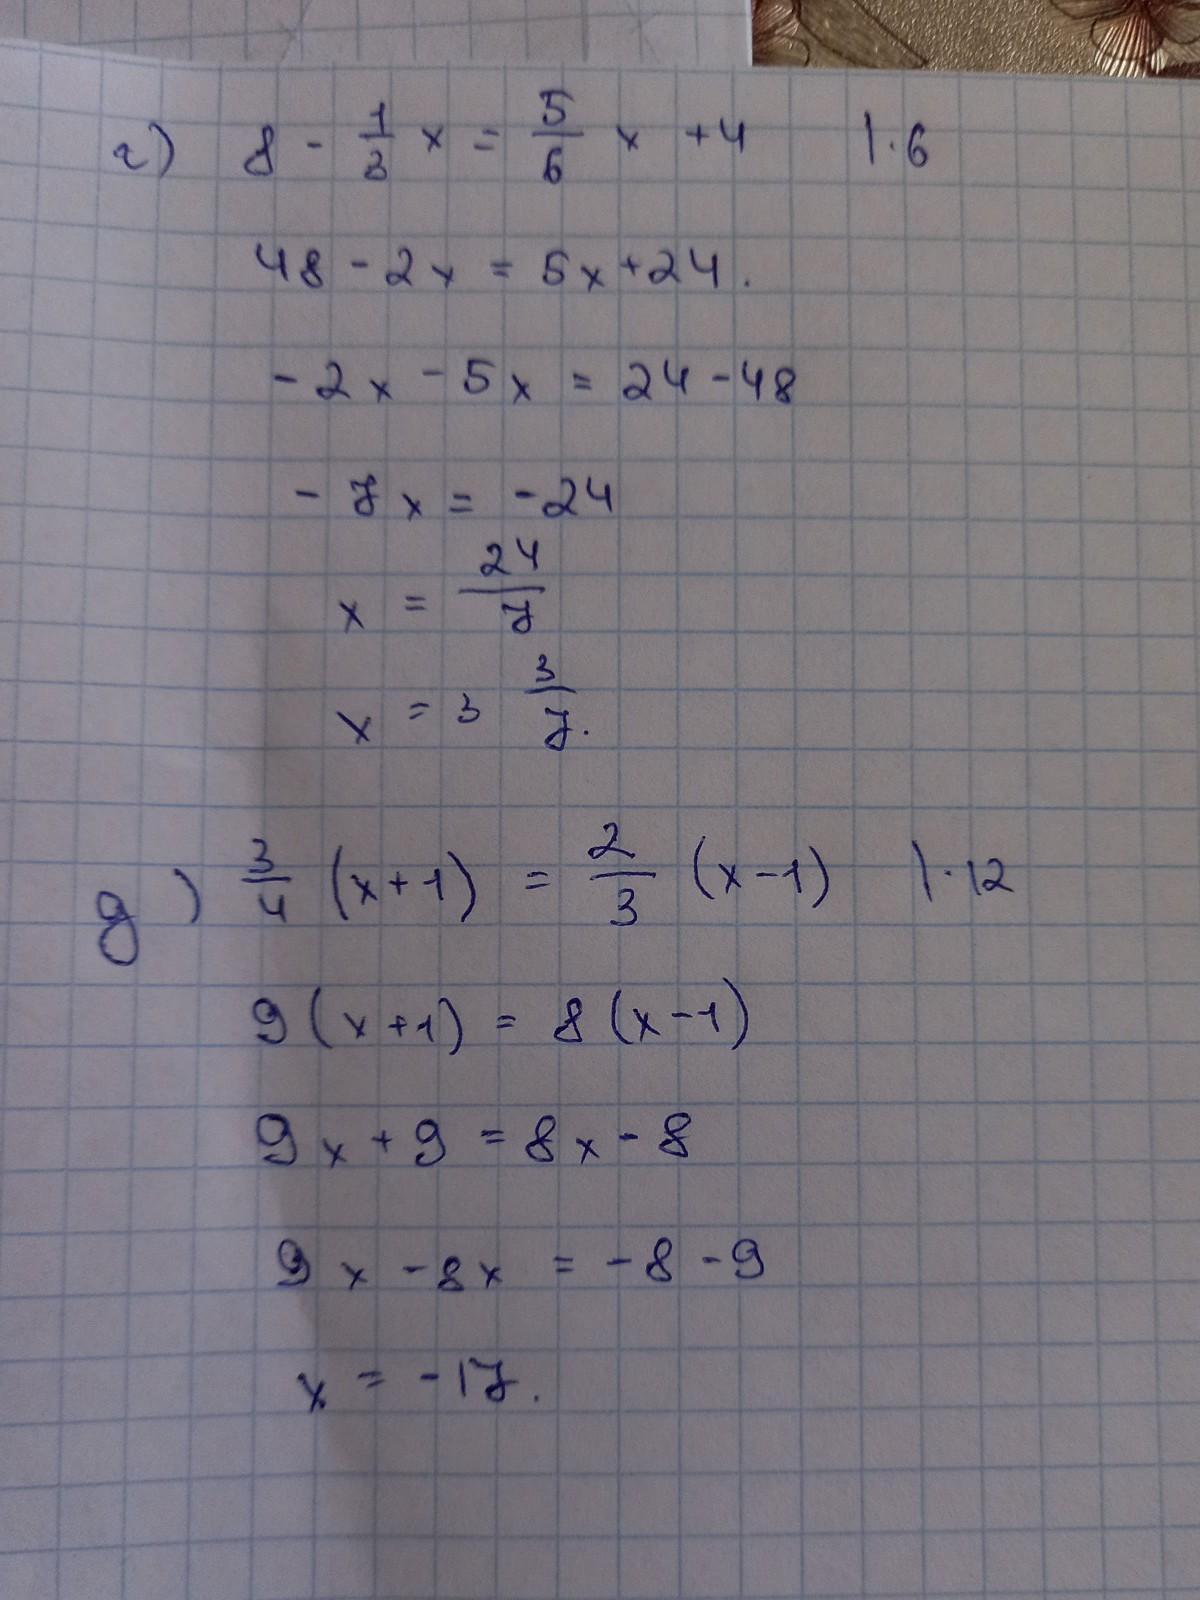 г) 8 - 1/3 x = 5/6 x + 4 |·6
48 - 2x = 5x + 24.
- 2x - 5x = 24 - 48
- 7x = - 24
x = 24/7
x = 3 3/7.
д) 3/4 (x+1) = 2/3 (x-1) |·12
9(x+1) = 8(x-1)
9x + 9 = 8x - 8
9x - 8x = -8 - 9
x = -17.